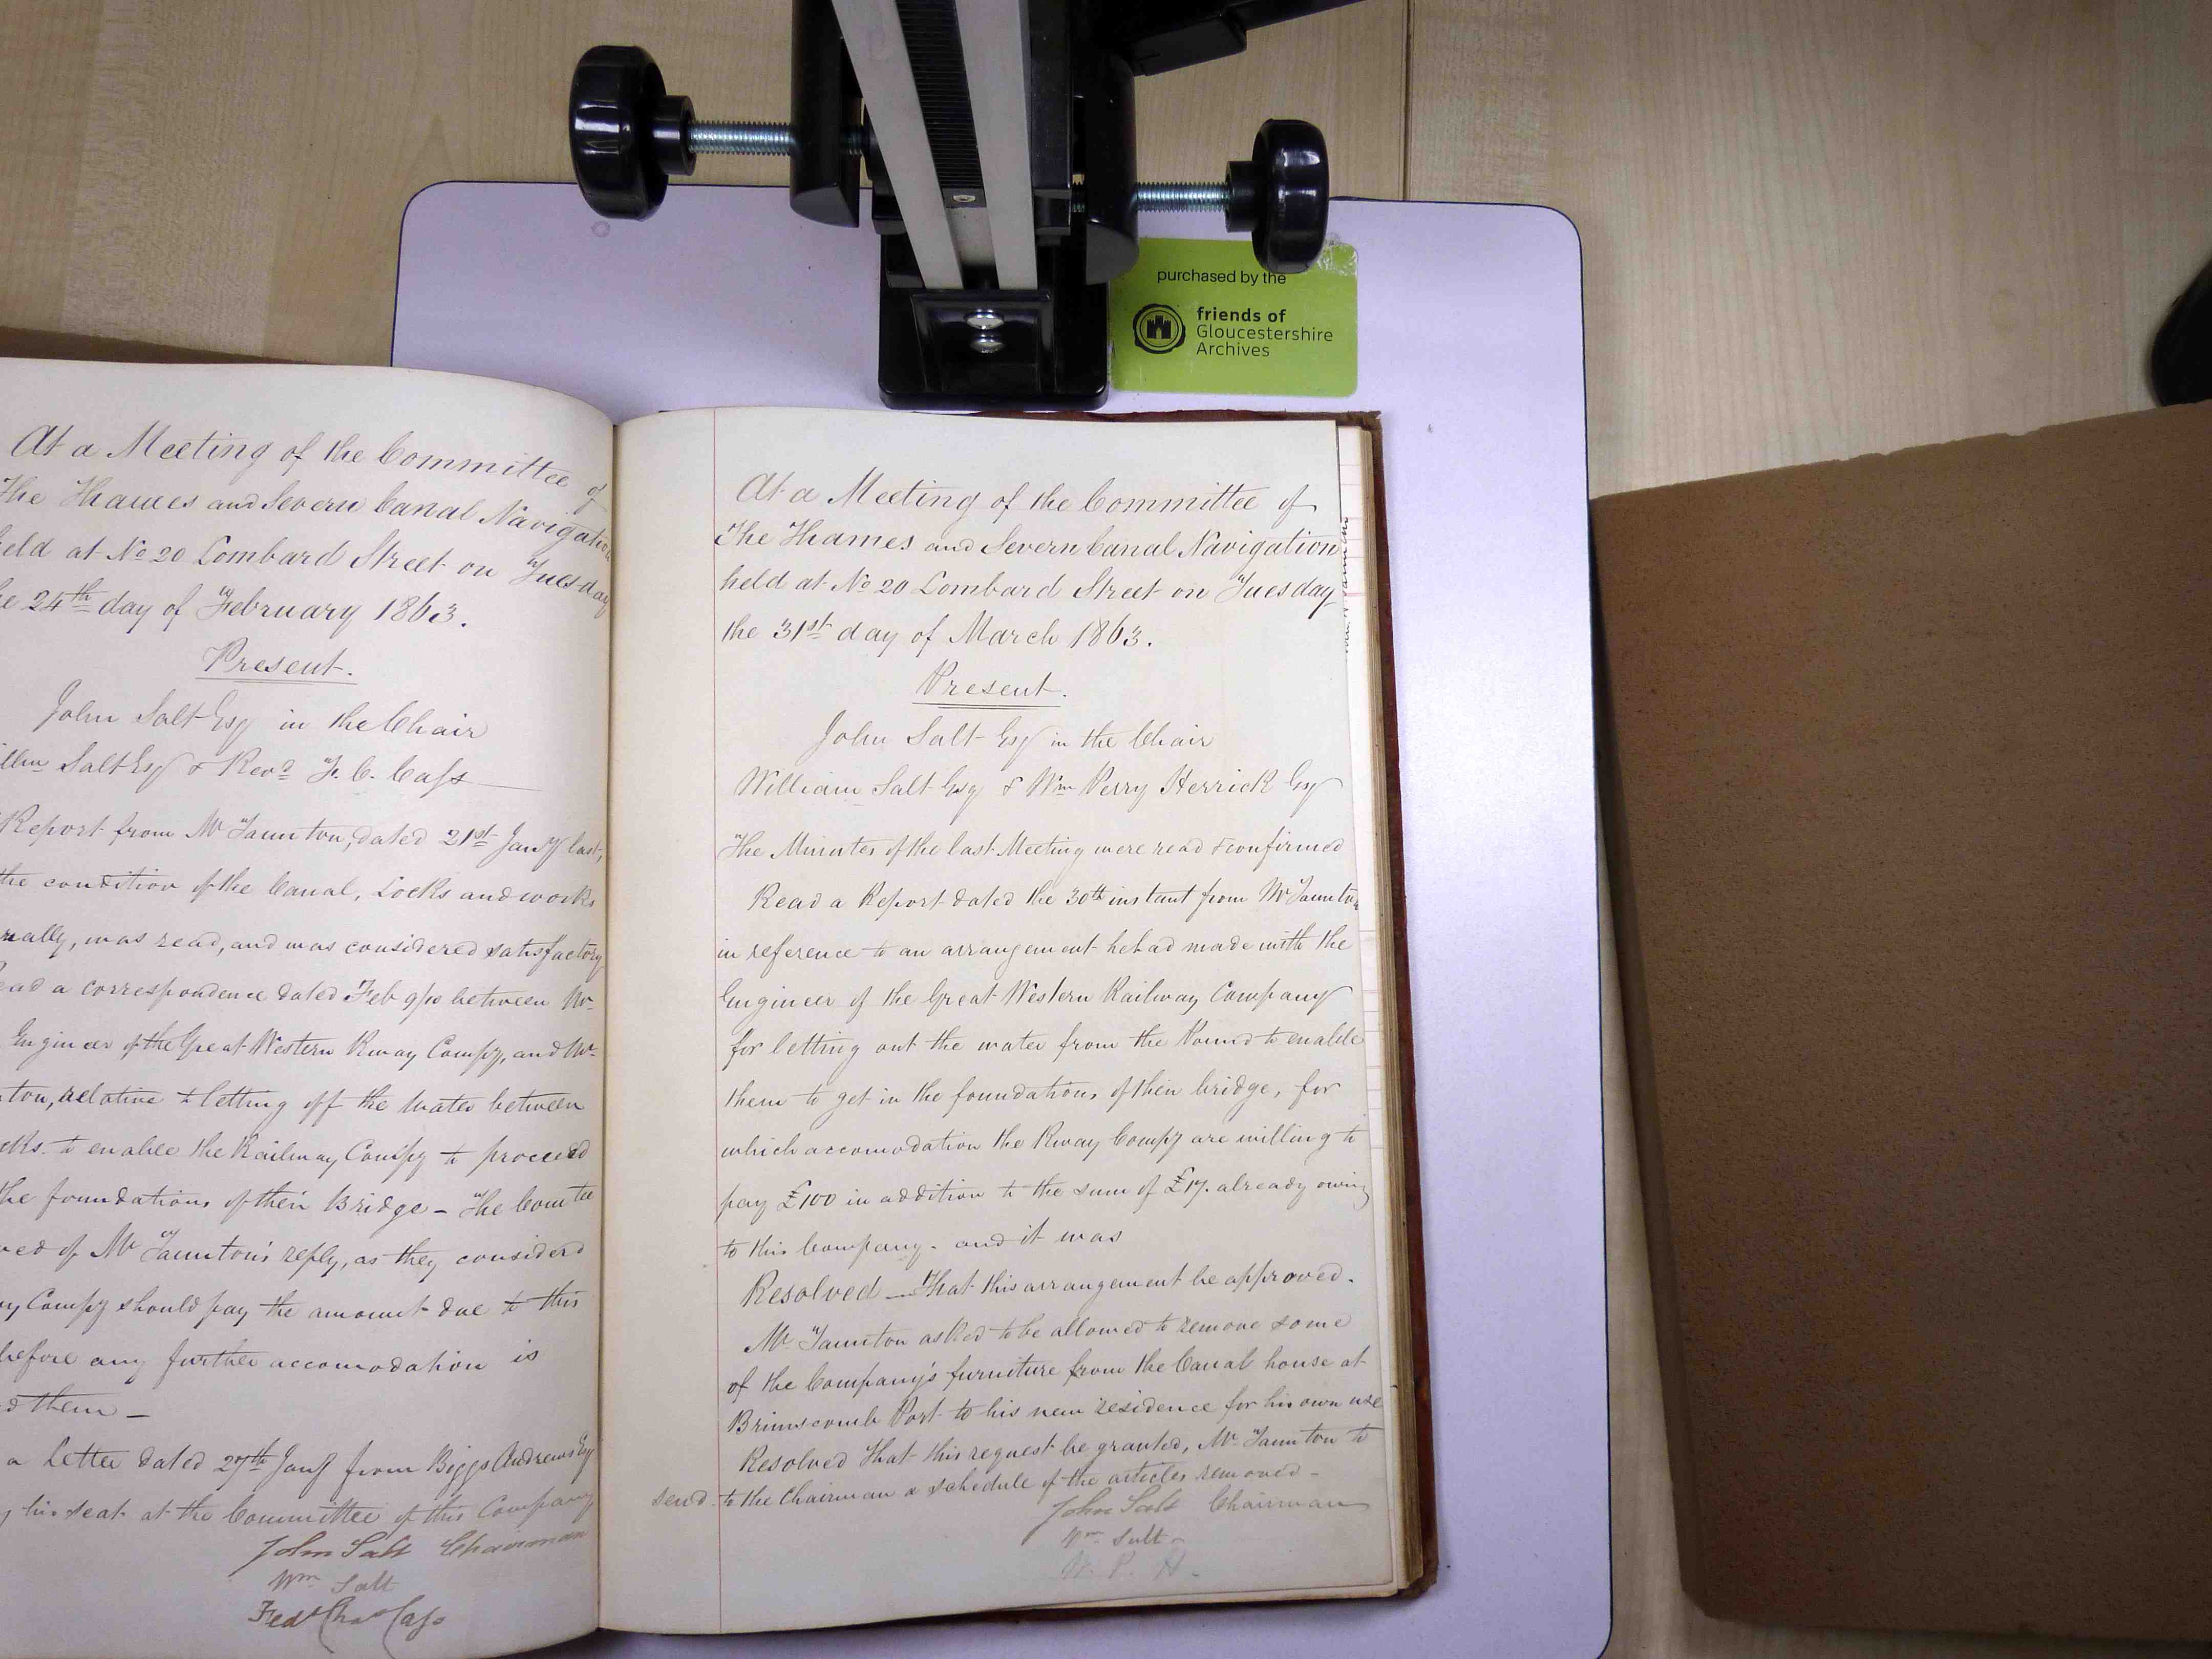 purchased by the
friends of
Gloucestershire
Archives
At a Meeting of the Committee of
The Thames and Severn Canal Navigation
held at No 20 Lombard Street on Tuesday
the 24th day of February 1863.
Present.
John Salt Esq in the Chair
Salt Esq & Revd F. C. Cass
Report from Mr Taunton, dated 21st Jany last,
the condition of the Canal, Locks and works
was read, and was considered satisfactory
a correspondence dated Feb 9/10 between Mr
Engineer of the Great Western Rway Compy, and Mr
relative to letting off the water between
to enable the Railway Compy to proceed
the foundations of their Bridge – The Comtee
of Mr Taunton's reply, as they considered
Compy should pay the amount due to this
before any further accomodation is
them –
a Letter dated 27th Jany from Biggs Andrews Esq
his seat at the Committee of this Company
John Salt Chairman
Wm Salt
Fredk Chas Cass
At a Meeting of the Committee of
The Thames and Severn Canal Navigation
held at No 20 Lombard Street on Tuesday
the 31st day of March 1863.
Present.
John Salt Esq in the Chair
William Salt Esq & Wm Perry Herrick Esq
The Minutes of the last Meeting were read & confirmed
Read a Report dated the 30th instant from Mr Taunton
in reference to an arrangement he had made with the
Engineer of the Great Western Railway Company
for letting out the water from the Pound to enable
them to get in the foundations of their bridge, for
which accomodation the Rway Compy are willing to
pay £100 in addition to the sum of £17. already owing
to this Company. and it was
Resolved – That this arrangement be approved.
Mr Taunton asked to be allowed to remove some
of the Company's furniture from the Canal house at
Brimscomb Port to his new residence for his own use
Resolved That this request be granted, Mr Taunton to
send to the Chairman a schedule of the articles removed –
John Salt Chairman
Wm Salt
W. P. H.